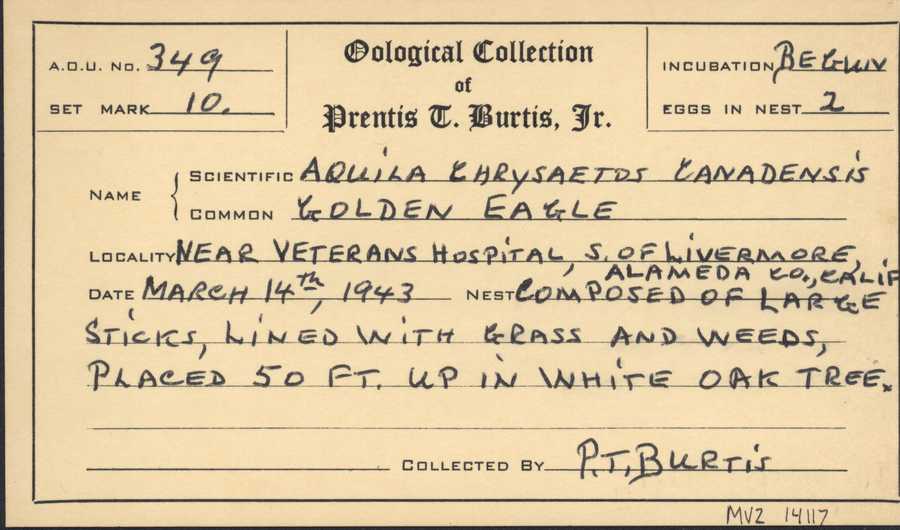 A.O.U. No. 349
Oological Collection
of
Prentis T. Burtis, Jr.
INCUBATION BEGUN
SET MARK 10.
EGGS IN NEST 2
NAME
SCIENTIFIC AQUILA CHRYSAETOS CANADENSIS
COMMON GOLDEN EAGLE
LOCALITY NEAR VETERANS HOSPITAL, S. OF LIVERMORE,
ALAMEDA CO., CALIF
DATE MARCH 14th, 1943 NEST COMPOSED OF LARGE
STICKS, LINED WITH GRASS AND WEEDS,
PLACED 50 FT. UP IN WHITE OAK TREE.
COLLECTED BY P.T. BURTIS
MVZ 14117